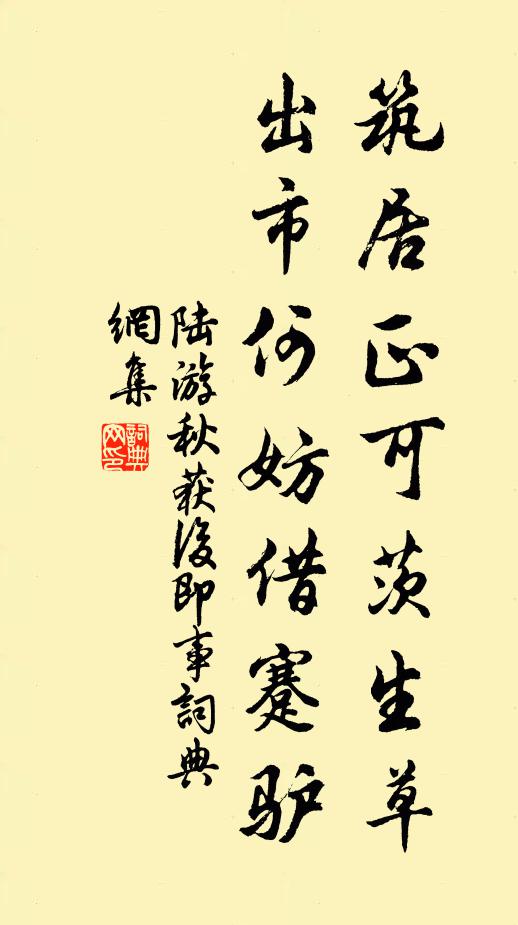 筑居正可茨生草
出市何妨借蹇驴
陆游秋获後即事詞典
網集
詞典網印